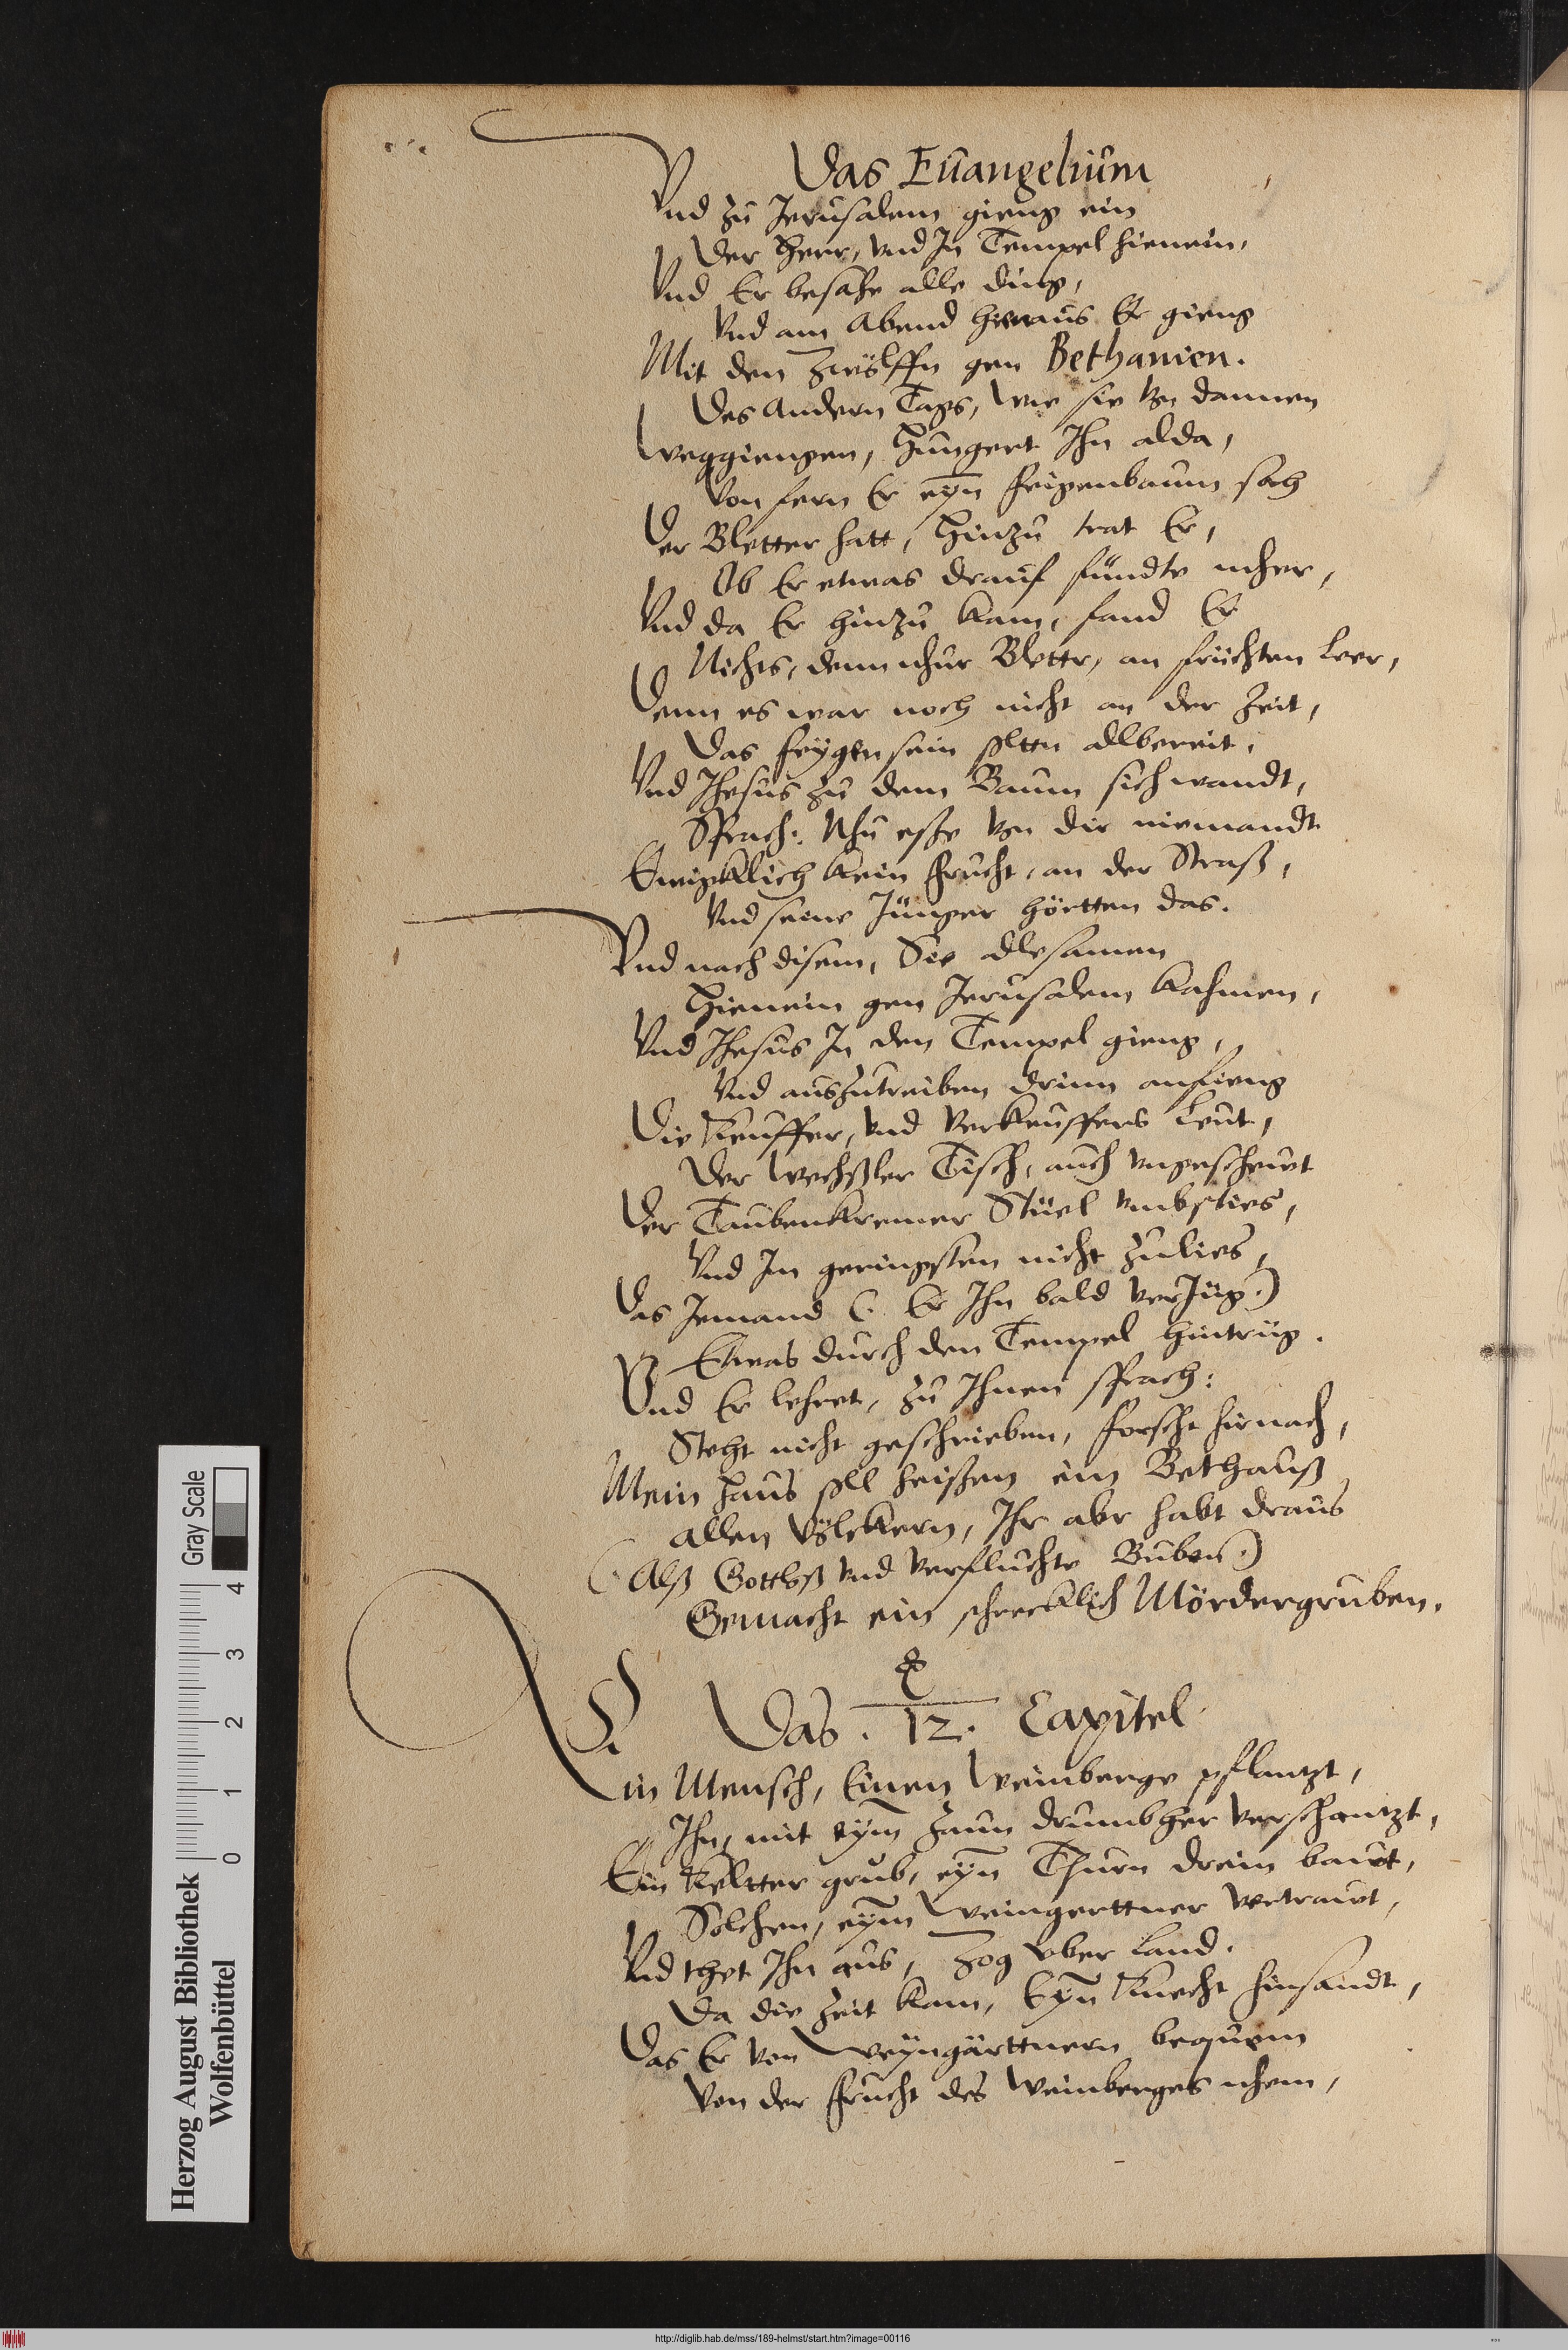 Das Euangelium
Vnd zu Jerusalem gieng ein
Der Herr, vnd In Tempel hienein,
Vnd Er besahe alle ding,
Vnd am Abend hienaus Er gieng
Mit den Zwölffn gen Bethanien.
Des Andern Tags, wie sie von dannen
Weggiengen, Hungert Ihn alda,
Von fern Er eyn Feigenbaum sah
Der Bletter hatt, Hinzu trat Er,
Ob Er etwas drauf fündte neher,
Vnd da Er hinzu kam, fand Er
Nichts, denn nhur Blettr, an früchten leer,
Denn es war noch nicht an der Zeit,
Das Feygen sein soltn allbereit,
Vnd Jhesus zu dem Baum sich wandt,
Sprach: Nhu eße von dir niemandt
Ewigklich kein Frucht, an der Straß,
Vnd seine Jünger hörtten das.
Vnd nach disem, Sie allesamen
Hienein gen Jerusalem kahmen,
Vnd Jhesus In den Tempel gieng,
Vnd auszutreiben drinn anfieng
Die Keuffer, vnd Verkeuffers Leut,
Der Wechßler Tisch, auch vngescheut
Der Taubenkremer Stüel vmbsties,
Vnd Im geringsten nicht zulies,
Das Jemand (: Er Ihn bald verjüg:)
Etwas durch den Tempel hintrüg.
Vnd Er lehret, zu Ihnen sprach:
Steht nicht geschrieben, forscht hirnach,
Mein Haus soll heißen ein Bethauß
Allen Völckern, Ihr abr habt draus
(: Alß Gottloß vnd verfluchte Buben:)
Gemacht ein schrecklich Mördergruben.
Das . 12. Capitel
Ein Mensch, Einen Weinberge pflantzt,
Ihn, mit eym Zaun drumbher verschantzt,
Ein Keltter grub, eyn Thurn drein bauet,
Solchen, eym Weingerttner vertrauet,
Vnd thet Ihn aus, Zog vber Land.
Da die Zeit kam, Eyn Knecht hinsandt,
Das Er von Weyngärttnern bequem
Von der Frucht des Weinberges nhem,
Herzog August Bibliothek
Wolfenbüttel
0 1 2 3 4
Gray Scale
http://diglib.hab.de/mss/189-helmst/start.htm?image=00116